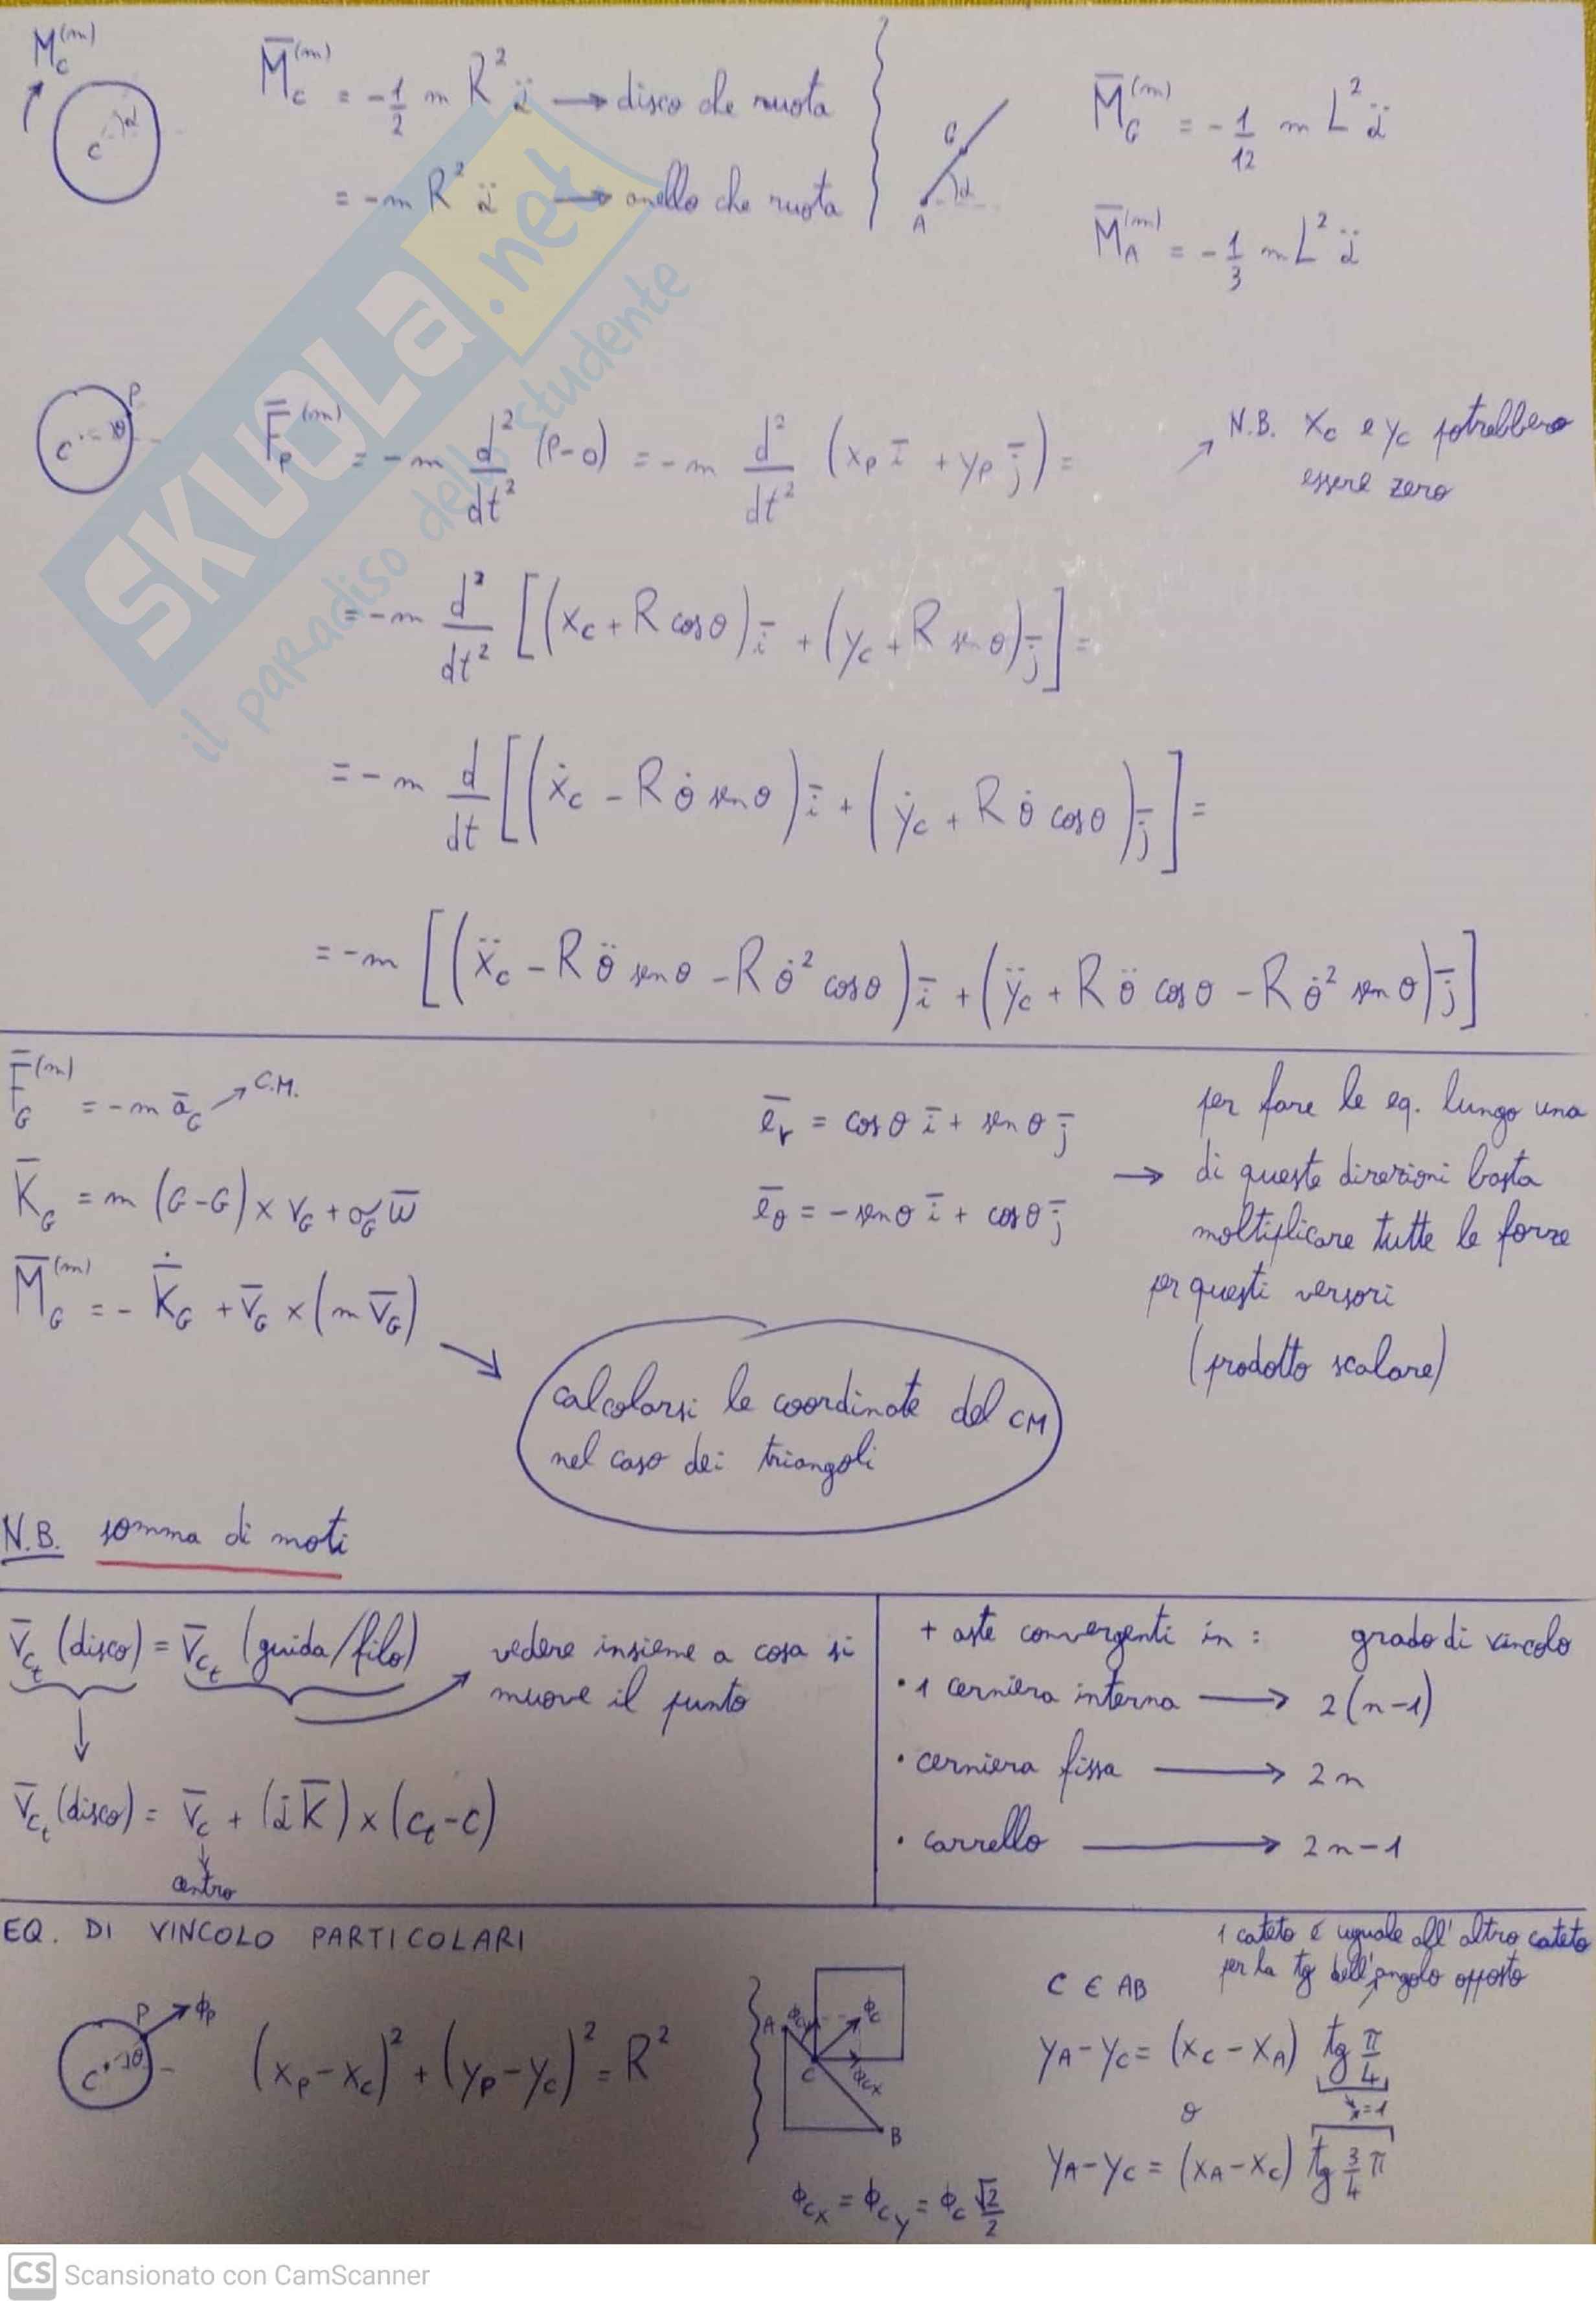 M_C^(m)
M̅_C^(m) = -1/2 m R² α̈ → disco che ruota
= -m R² α̈ → anello che ruota
C α
G
A α
M̅_G^(m) = -1/12 m L² α̈
M̅_A^(m) = -1/3 m L² α̈
SKUOLA.net
il paradiso dello studente
P
C θ
F̅_P^(m) = -m d²/dt² (P-O) = -m d²/dt² (x_P i̅ + y_P j̅) =
N.B. x_C e y_C potrebbero
essere zero
= -m d²/dt² [(x_C + R cosθ) i̅ + (y_C + R senθ) j̅] =
= -m d/dt [(ẋ_C - R θ̇ senθ) i̅ + (ẏ_C + R θ̇ cosθ) j̅] =
= -m [(ẍ_C - R θ̈ senθ - R θ̇² cosθ) i̅ + (ÿ_C + R θ̈ cosθ - R θ̇² senθ) j̅]
F̅_G^(m) = -m a̅_G → C.M.
K̅_G = m (G-G) × v_G + σ_G ω̅
M̅_G^(m) = - K̅̇_G + v̅_G × (m v̅_G)
e̅_r = cosθ i̅ + senθ j̅
e̅_θ = -senθ i̅ + cosθ j̅
→ per fare le eq. lungo una
di queste direzioni basta
moltiplicare tutte le forze
per questi versori
(prodotto scalare)
calcolarsi le coordinate del CM
nel caso dei triangoli
N.B. somma di moti
v̅_Ct (disco) = v̅_Ct (guida/filo)
vedere insieme a cosa si
muove il punto
v̅_Ct (disco) = v̅_C + (α̇ K̅) × (C_t - C)
centro
+ aste convergenti in : grado di vincolo
• 1 cerniera interna → 2(n-1)
• cerniera fissa → 2n
• carrello → 2n-1
EQ. DI VINCOLO PARTICOLARI
P ϕ_P
C θ
(x_P - x_C)² + (y_P - y_C)² = R²
A ϕ_Cy ϕ_C
C ϕ_Cx
B
ϕ_Cx = ϕ_Cy = ϕ_C √2/2
1 cateto è uguale all'altro cateto
per la tg dell'angolo opposto
C ∈ AB
y_A - y_C = (x_C - x_A) tg π/4
=1
o
y_A - y_C = (x_A - x_C) tg 3/4 π
CS Scansionato con CamScanner